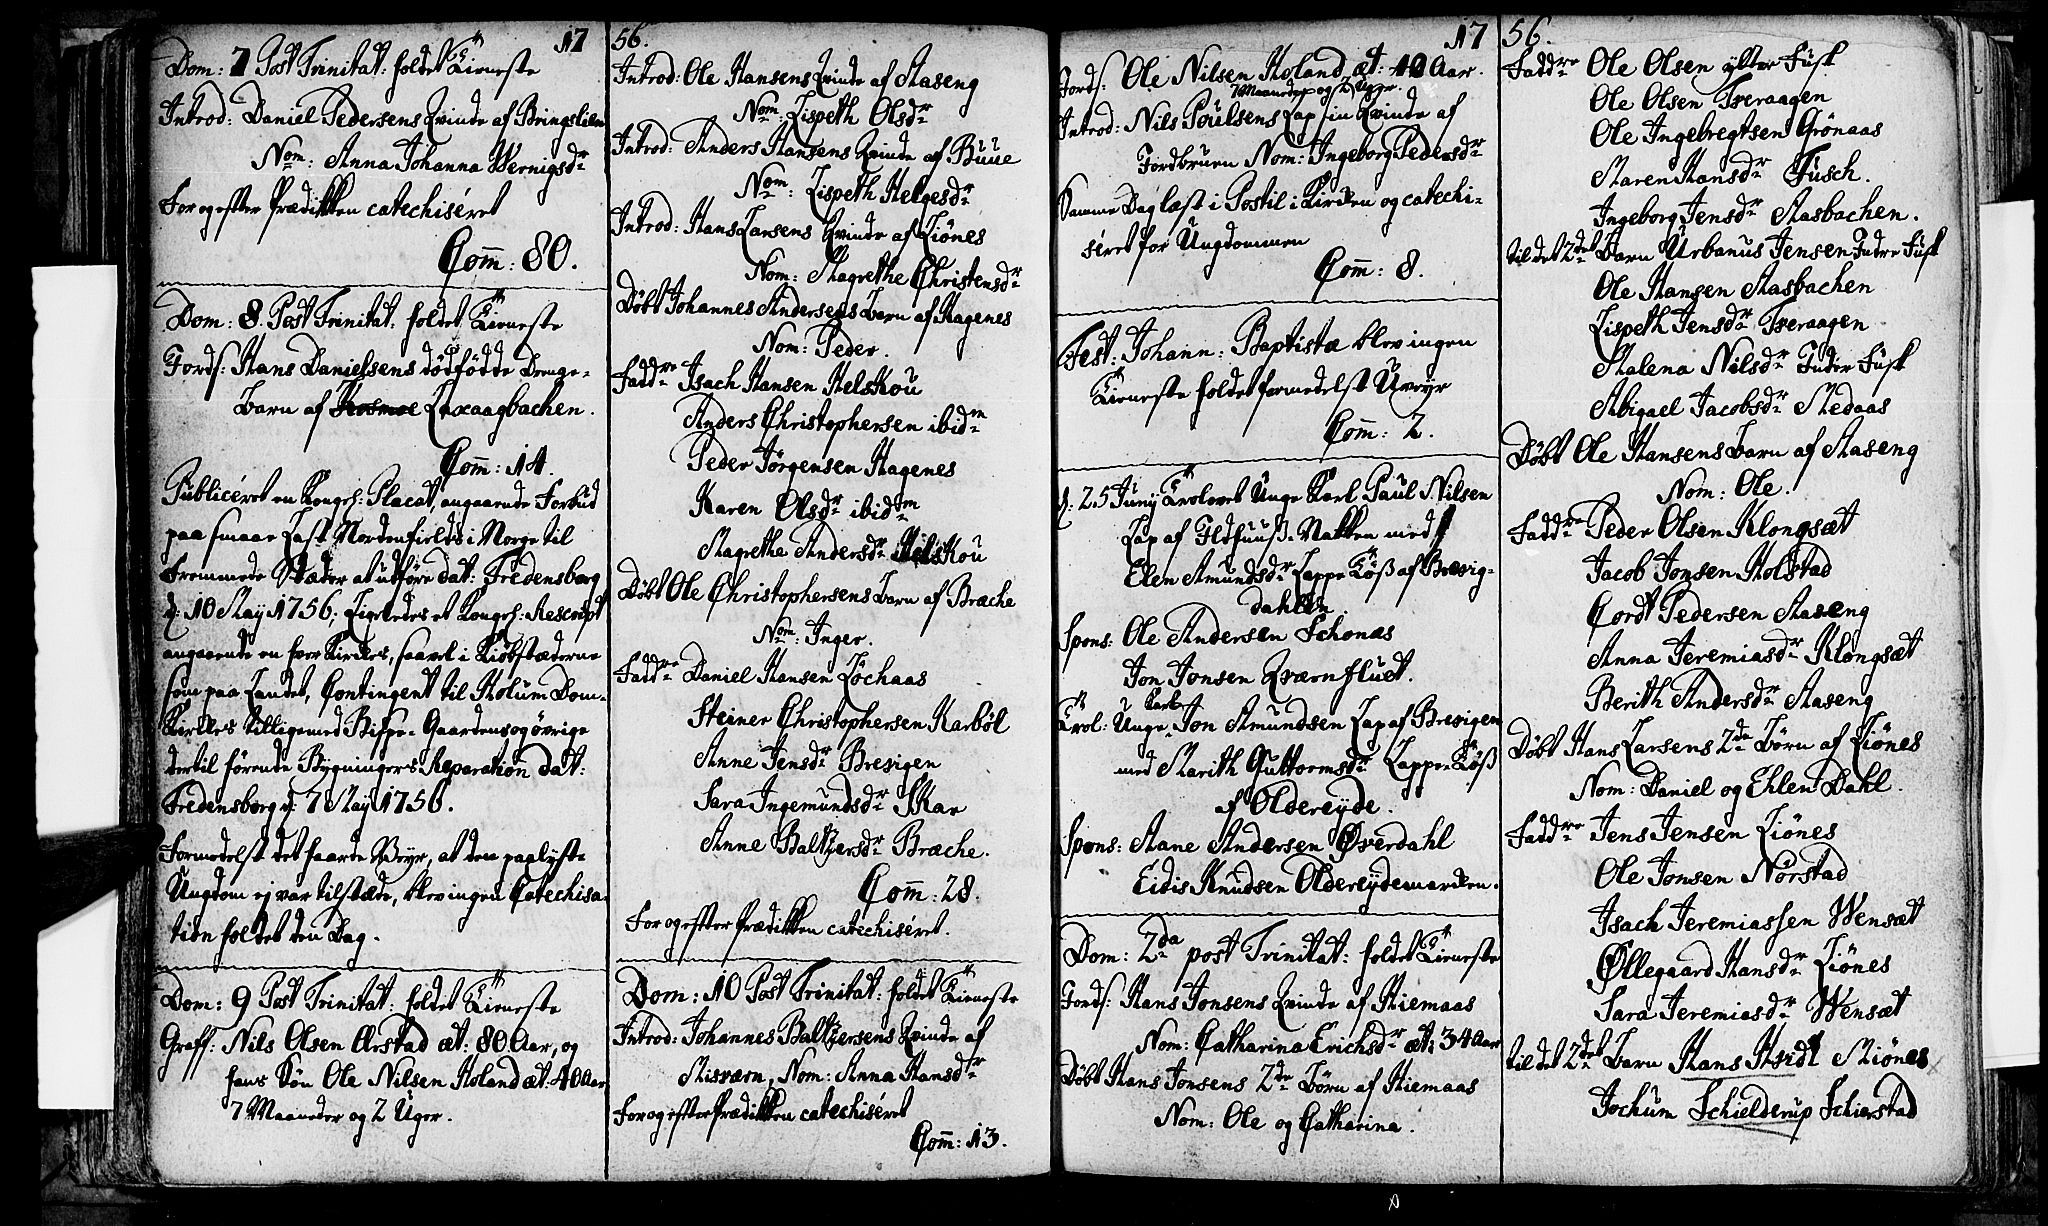 17
Dom: 7 Post Trinitat: holdet Tieneste
Introd: Daniel Pedersens Qvinde af Bringslien
Nom: Anna Johanna Wernigsdr
For og efter Prædikken catechiséret
Com̄: 80.
Dom: 8. Post Trinitat: holdet Tieneste
Jords: Hans Danielsens dödfödde Drenge-
Barn af Laxaagbachen.
Com̄: 14.
Publicéret en Kongel: Placat, angaaende Forbud
paa smaae Last Nordenfields i Norge til
Fremmede Stæder at udföre dat: Fredensborg
d: 10 May 1756; Ligeledes et Kongel: Rescript
angaaende en hver Kirkes, saavel i Kiöbstæderne
som paa Landet, Contingent til Holum Dom-
Kirkes tilligemed Bispe-Gaardens og övrige
dertil hörende Bygningers Reparation dat:
Fredensborg d: 7 May 1756.
Formedelst det haarde Veyr, at den paalyste
Ungdom ej var tilstæde, blev ingen Catechisa-
tion holdet den Dag.
Dom: 9 Post Trinitat: holdet Tieneste
Graff: Nils Olsen Arstad æt: 80 Aar, og
hans Sön Ole Nilsen Holand æt: 40 Aar
7 Maaneder og 2 Uger.
56.
Introd: Ole Hansens Qvinde af Aaseng
Nom: Lispeth Olsdr
Introd: Anders Hansens Qvinde af Buue
Nom: Lispeth Helgesdr
Introd: Hans Larsens Qvinde af Liönes
Nom: Magrethe Christensdr
Döbt Johannes Andersens Barn af Hagenes
Nom: Peder.
Faddre Isach Hansen Helskou
Anders Christophersen ibidm
Peder Jörgensen Hagenes
Karen Olsdr ibidm
Magrethe Andersdr Helskou
Döbt Ole Christophersens Barn af Bræche
Nom: Inger.
Faddre Daniel Hansen Löchaas
Steiner Christophersen Karböl
Anne Jensdr Bresigen
Sara Ingemundsdr Skar
Anne Baltzersdr Bræche.
Com̄: 28.
For og efter Prædikken catechiséret.
Dom: 10 Post Trinitat: holdet Tieneste
Introd: Johannes Baltzersens Qvinde af
Misværn, Nom: Anna Hansdr
For og efter Prædikken catechiséret
Com̄: 13.
17
Jords: Ole Nilsen Holand æt: 40 Aar.
7 Maaneder og 2 Uger.
Introd: Nils Poulsens Lap sin Qvinde af
Fordbruen Nom: Ingeborg Pedersdr
Samme Dag læst i Postil i Kirken og catechi-
séret for Ungdommen
Com̄: 8.
Fest: Johann: Baptistæ blev ingen
Tieneste holdet formedelst Uveyr
Com̄: 2.
d: 25 Juny Trolovet Unge Karl Paul Nilsen
Lap af Ildhuus-Natten med
Elen Amundsdr Lappe Töß af Bresig-
dahlen.
Spons: Ole Andersen Schonas
Jon Jonsen Qværnfluet.
Trol: Unge Karl Jon Amundsen Lap af Bresigen
med Marith Guttormsdr Lappe Töß
af Oldereyde.
Spons: Aane Andersen Øverdahl
Eidis Knudsen Oldereydemarken.
Dom: 2da post Trinitat: holdet Tieneste
Jords: Hans Jonsens Qvinde af Hiemaas
Nom: Catharina Erichsdr æt: 34 Aar
Döbt Hans Jonsens 2de Börn af Hiemaas
Nom: Ole og Catharina.
56.
Faddre Ole Olsen ytter Fusk
Ole Olsen Tveraagen
Ole Ingebregtsen Grönaas
Maren Hansdr Fusch.
Ingeborg Jensdr Aasbachen.
til det 2det Barn Urbanus Jensen Indre Fusk
Ole Hansen Aasbachen
Lispeth Jensdr Tveraagen
Malena Nilsdr Inder Fusk
Abigael Jacobsdr Medaas
Döbt Ole Hansens Barn af Aaseng
Nom: Ole.
Faddre Peder Olsen Klongsæt
Jacob Jonsen Holstad
Cort Pedersen Aaseng
Anna Jeremiasdr Klongsæt
Berith Andersdr Aaseng
Döbt Hans Larsens 2de Börn af Liönes
Nom: Daniel og Ehlen Dahl.
Faddre Jens Jensen Liönes
Ole Jonsen Nörstad
Isach Jeremiassen Wensæt
Øllegaard Hansdr Liönes
Sara Jeremiasdr Wensæt
til det 2det Barn Hans Hvidt Miönes
Jochum Schielderup Schierstad